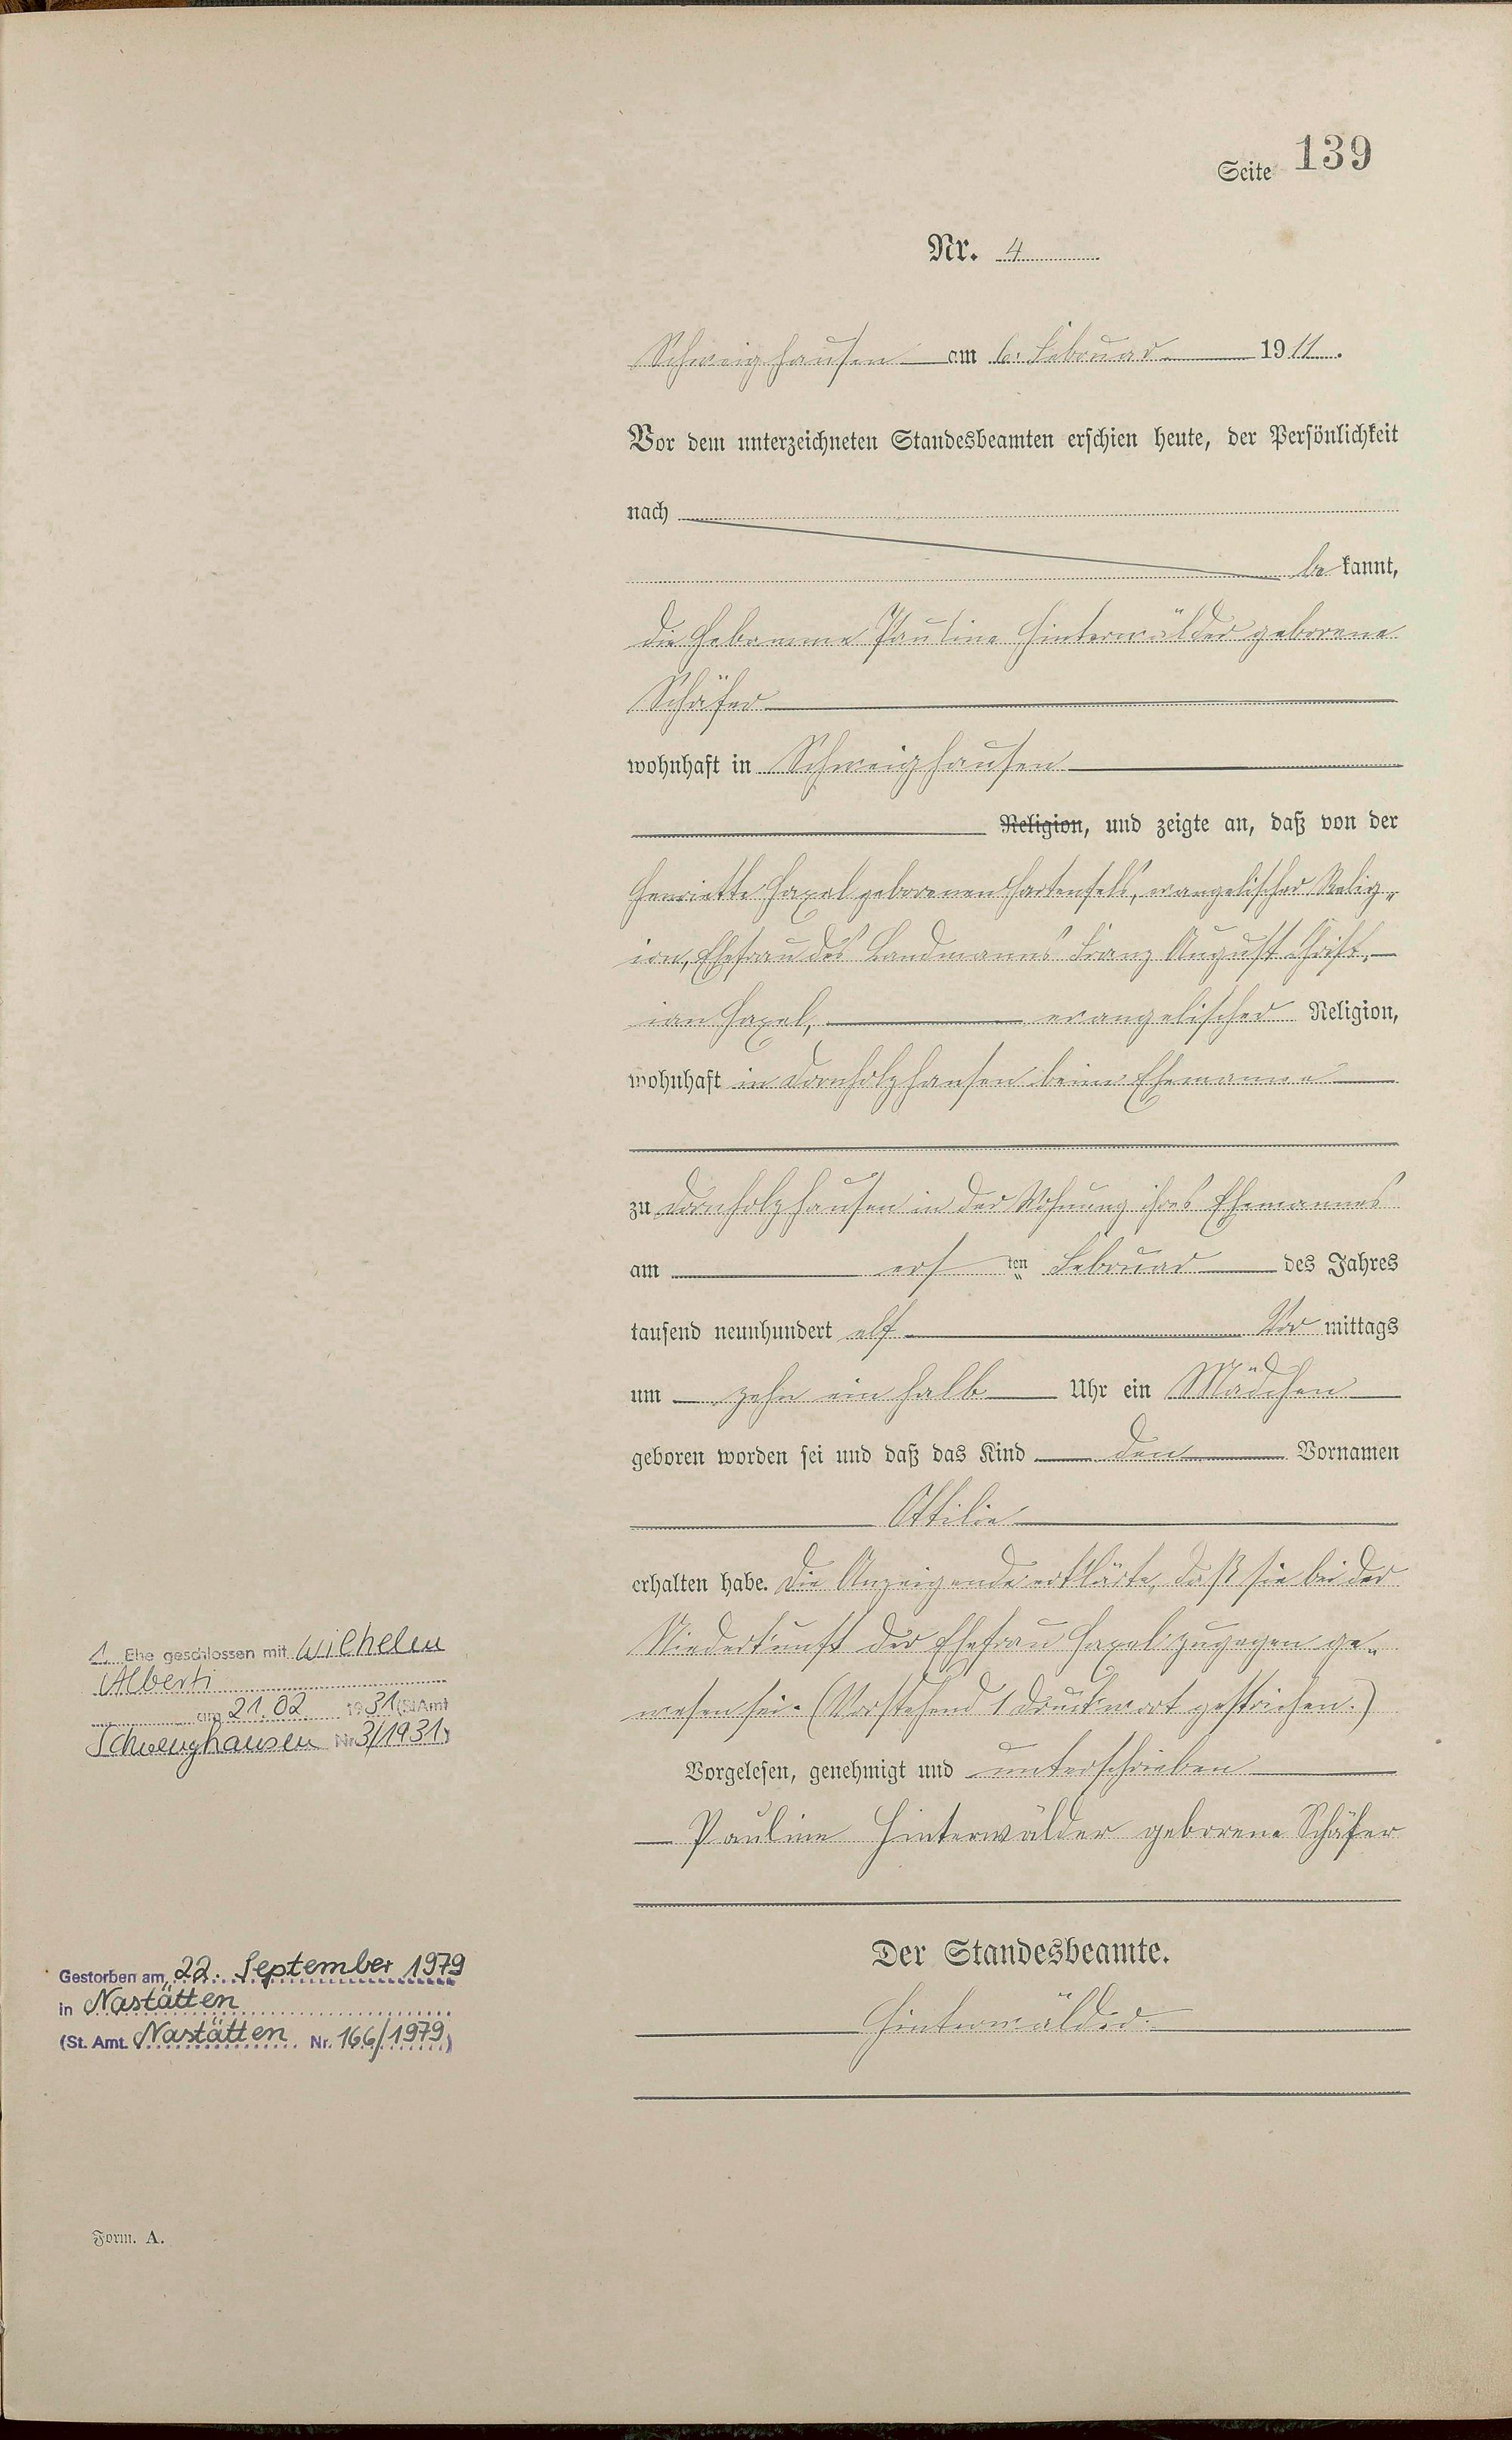 Seite 139
Nr. 4
Schweighausen am 6. Februar 1911.
Vor dem unterzeichneten Standesbeamten erschien heute, der Persönlichkeit
nach
be kannt,
die Hebamme Pauline Hinterwälder geborene
Schäfer
wohnhaft in Schweighausen
Religion, und zeigte an, daß von der
Henriette Haxel geborenen Hartenfels, evangelischer Relig-
ion, Ehefrau des Landmanns Franz August Christ-
ian Haxel, evangelischer Religion,
wohnhaft in Dornholzhausen beim Ehemanne
zu Dornholzhausen in der Wohnung ihres Ehemannes
am ersten Februar des Jahres
tausend neunhundert elf Vor mittags
um zehn ein halb Uhr ein Mädchen
geboren worden sei und daß das Kind den Vornamen
Ottilie
erhalten habe. Die Anzeigende erklärte, daß sie bei der
Niederkunft der Ehefrau Haxel zugegen ge-
wesen sei. (Vorstehend 1 Druckwort gestrichen.)
Vorgelesen, genehmigt und unterschrieben
Pauline Hinterwälder geborene Schäfer
Der Standesbeamte.
Hinterwälder.
1. Ehe geschlossen mit Wilhelm
Alberti
am 21.02. 1931 (StAmt
Schweighausen Nr 3/1931)
Gestorben am 22. September 1979
in Nastätten
(St. Amt. Nastätten Nr. 166/1979)
Form. A.